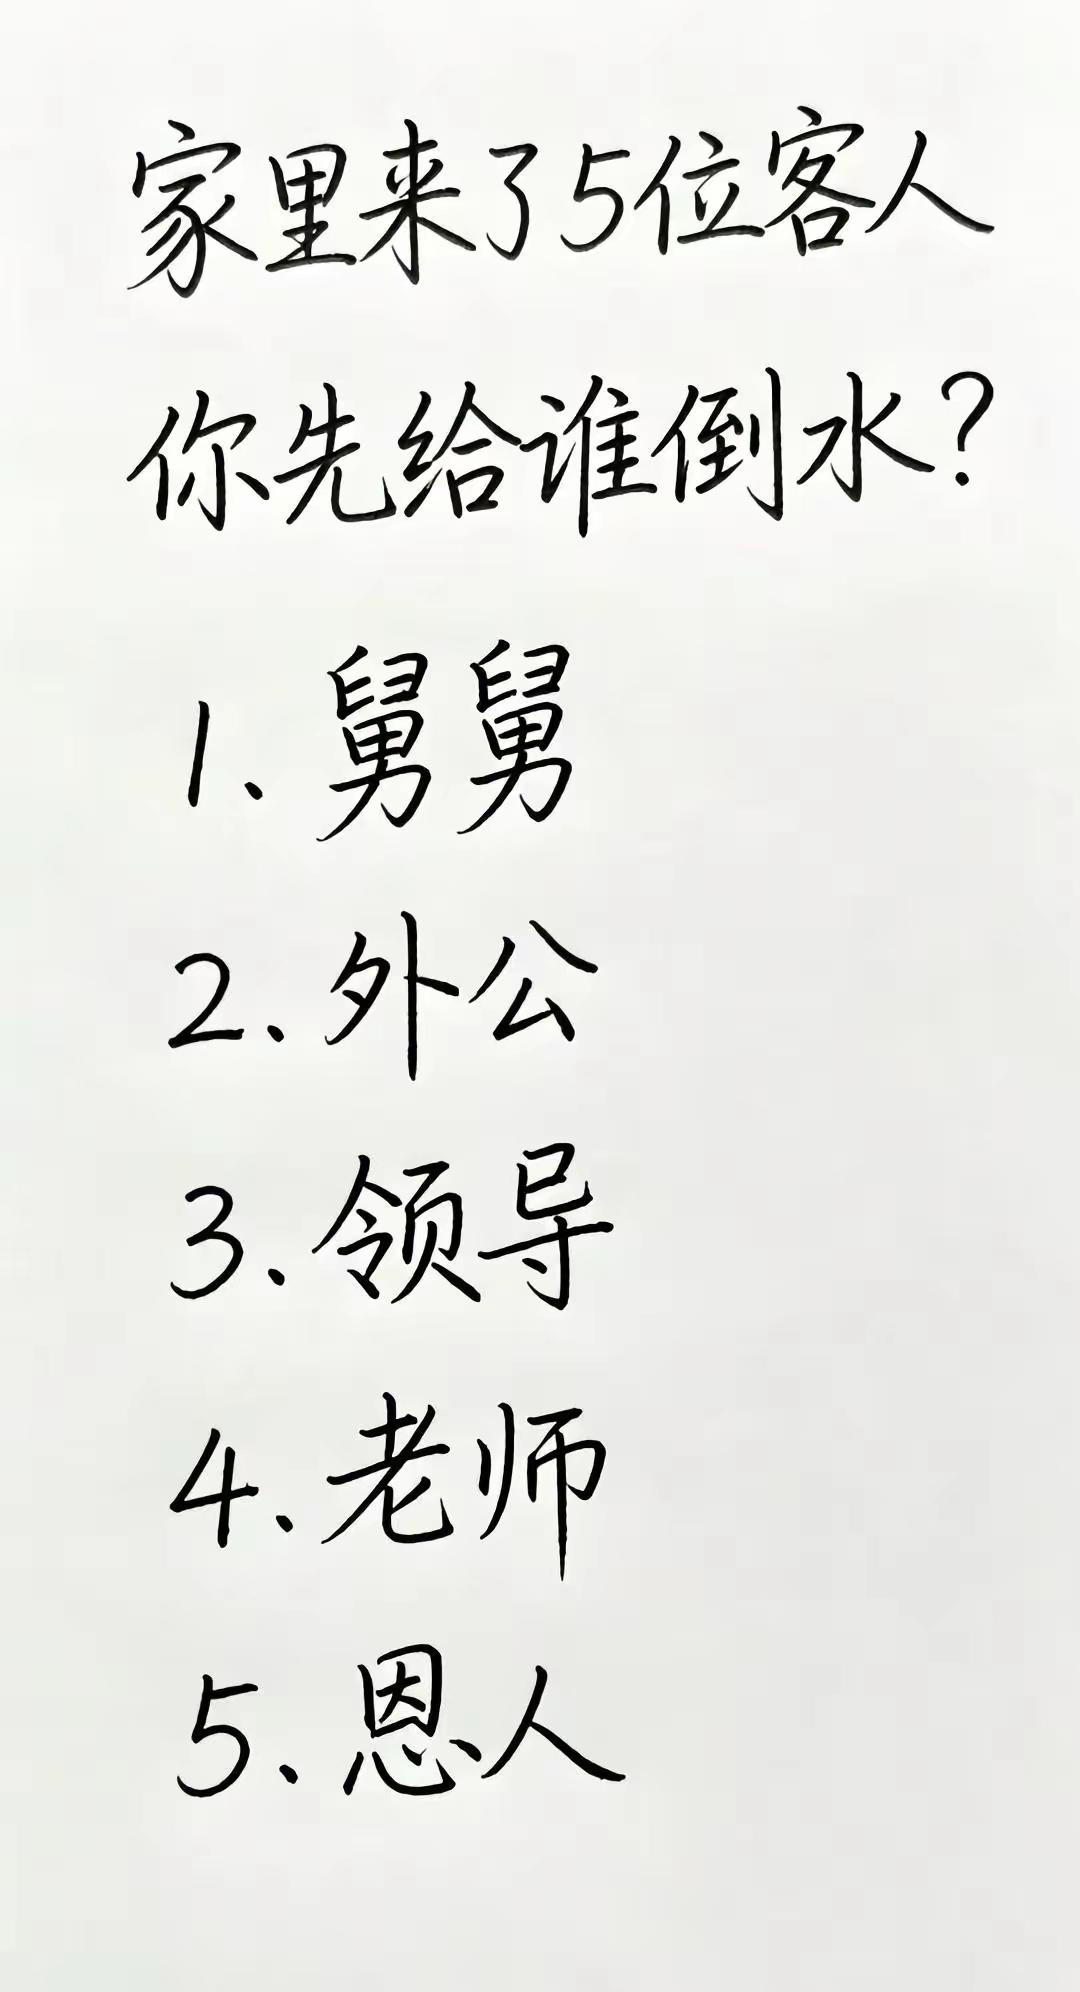 家里来了5位客人
你先给谁倒水?
1、舅舅
2、外公
3、领导
4、老师
5、恩人